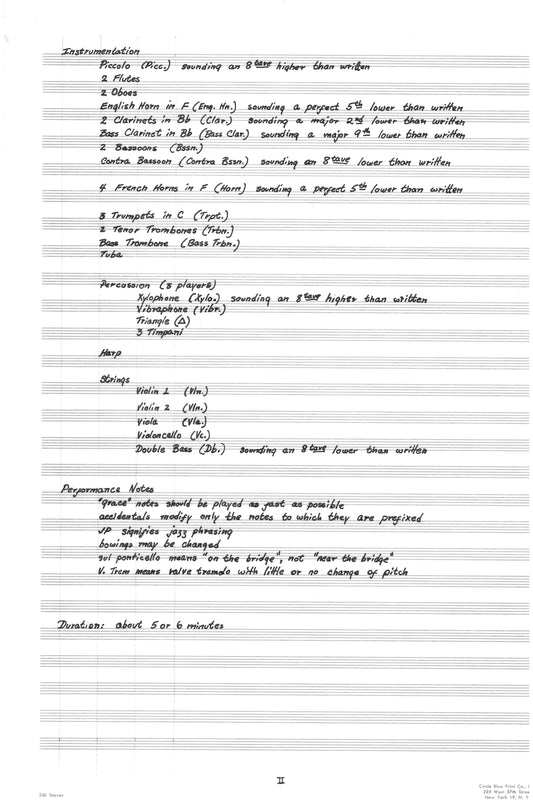 Instrumentation
Piccolo (Picc.) sounding an 8tave higher than written
2 Flutes
2 Oboes
English Horn in F (Eng. Hn.) sounding a perfect 5th lower than written
2 Clarinets in Bb (Clar.) sounding a major 2nd lower than written
Bass Clarinet in Bb (Bass Clar.) sounding a major 9th lower than written
2 Bassoons (Bssn.)
Contra Bassoon (Contra Bssn.) sounding an 8tave lower than written
4 French Horns in F (Horn) sounding a perfect 5th lower than written
3 Trumpets in C (Trpt.)
2 Tenor Trombones (Trbn.)
Bass Trombone (Bass Trbn.)
Tuba
Percussion (3 players)
Xylophone (Xylo.) sounding an 8tave higher than written
Vibraphone (Vibr.)
Triangle (△)
3 Timpani
Harp
Strings
Violin 1 (Vln.)
Violin 2 (Vln.)
Viola (Vla.)
Violoncello (Vc.)
Double Bass (Db.) sounding an 8tave lower than written
Performance Notes
"grace" notes should be played as fast as possible
accidentals modify only the notes to which they are prefixed
JP signifies jazz phrasing
bowings may be changed
sul ponticello means "on the bridge", not "near the bridge"
V. Trem means valve tremolo with little or no change of pitch
Duration: about 5 or 6 minutes
II
24 Staves
Circle Blue Print Co., I
225 West 57th Street
New York 19, N. Y.